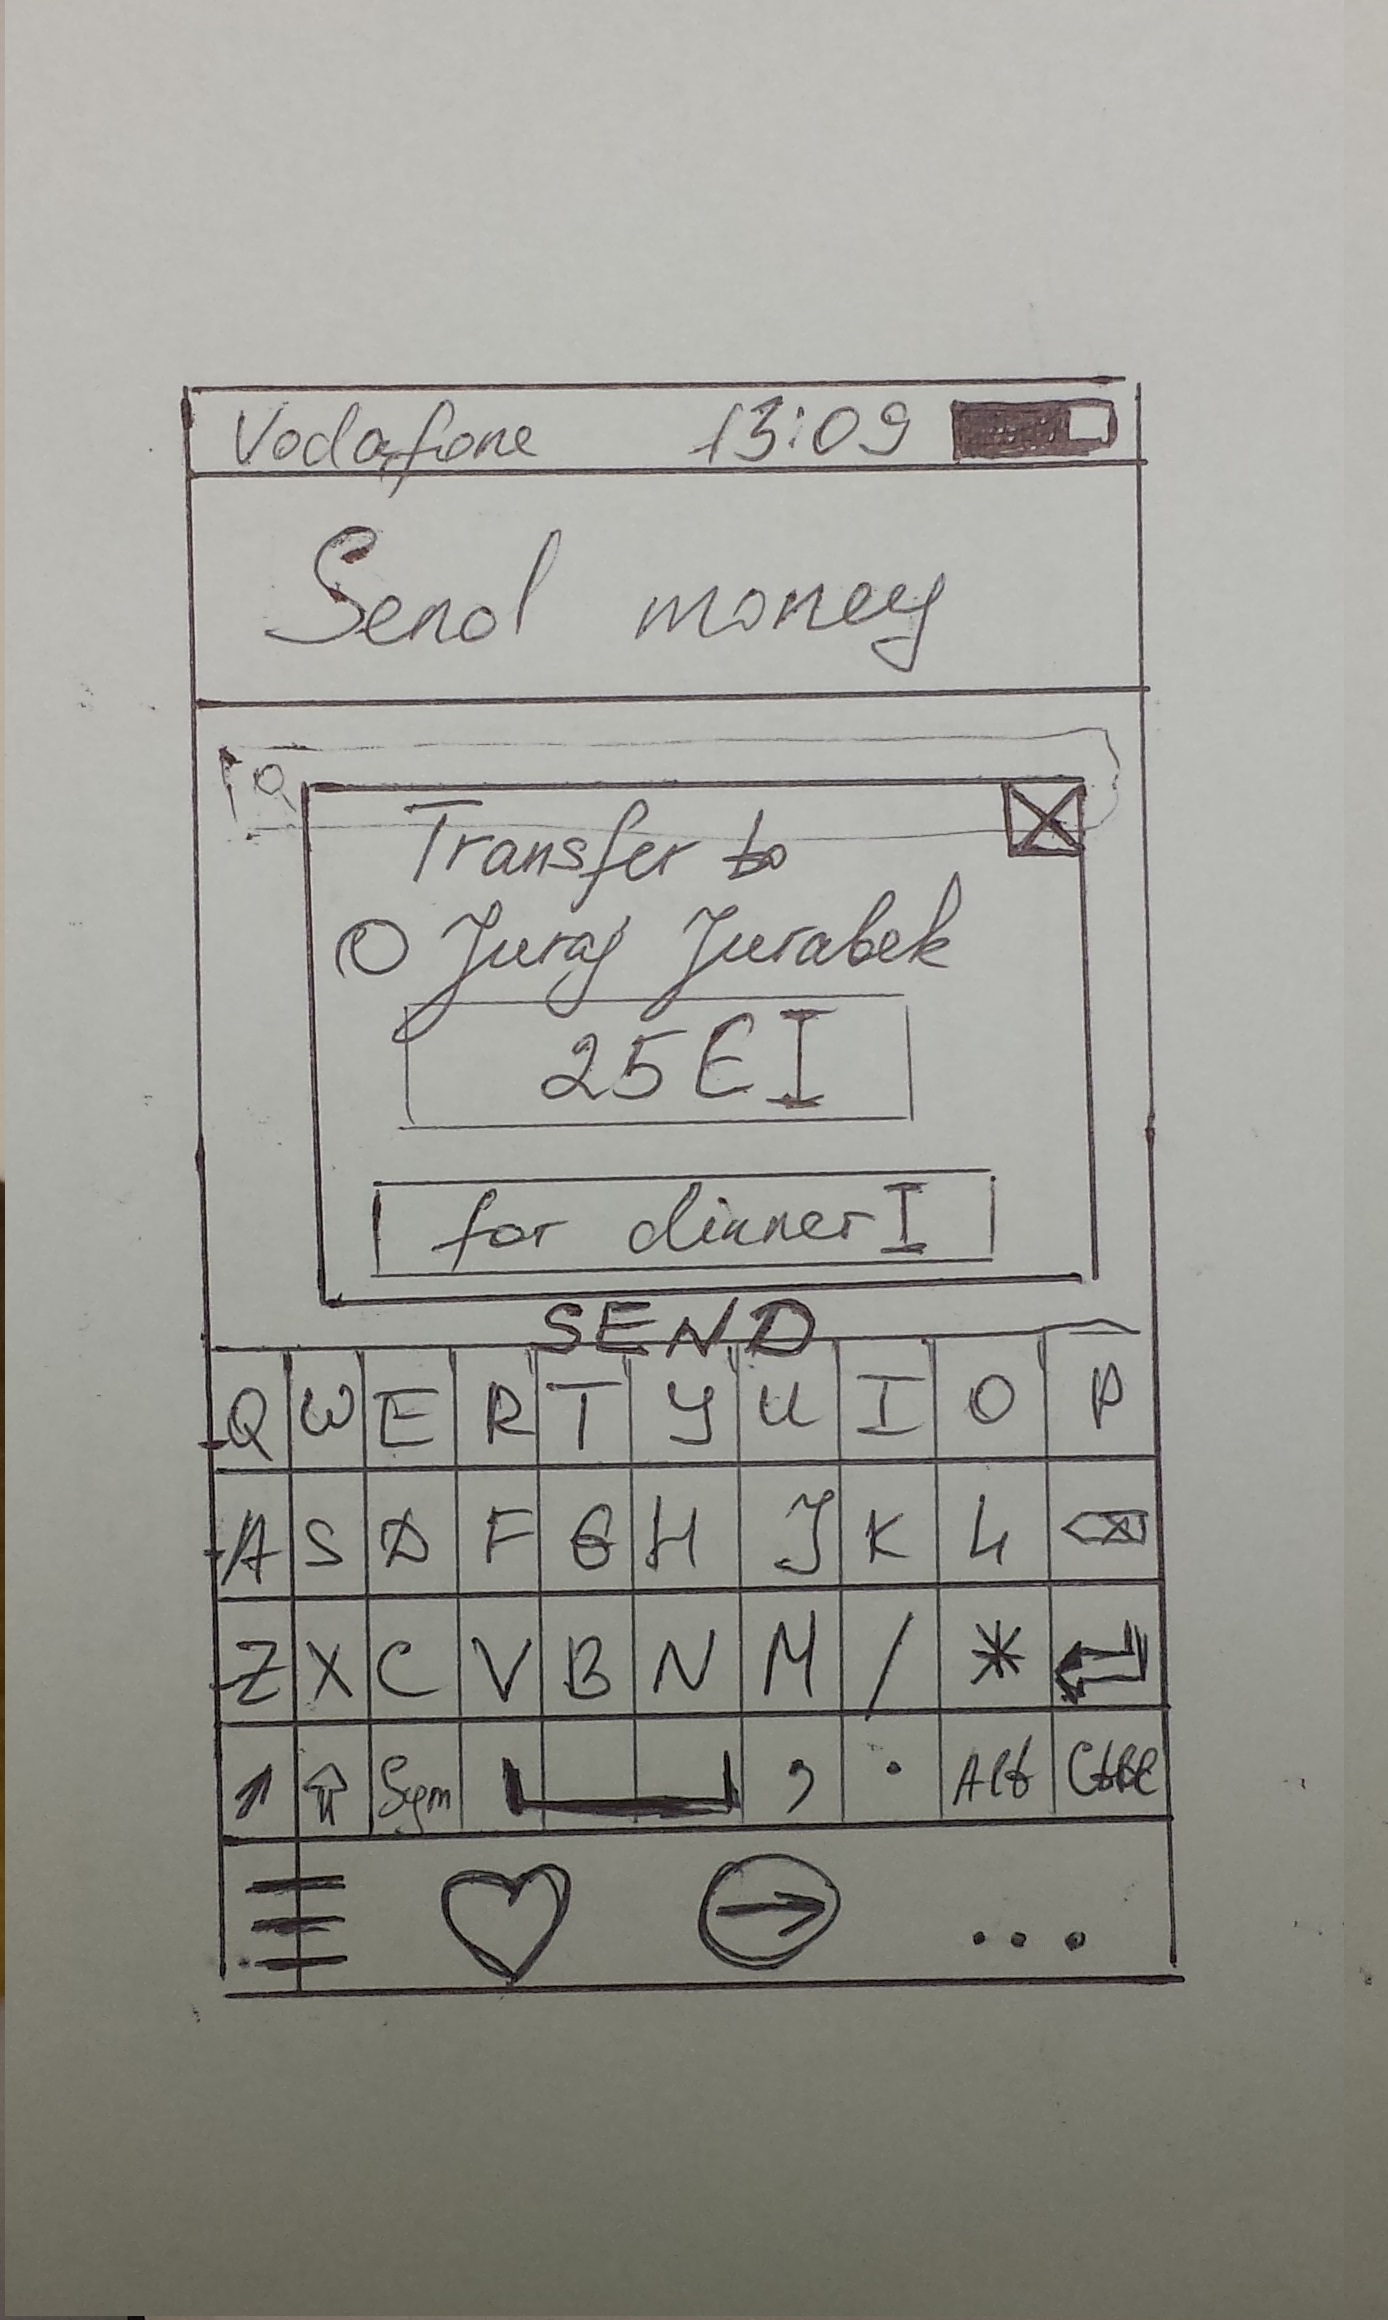 Vodafone 13:09
Send money
Transfer to
Juraj Jurabek
25€
for dinner
SEND
Q W E R T Y U I O P
A S D F G H J K L
Z X C V B N M / *
Sym , . Alt Ctrl
...